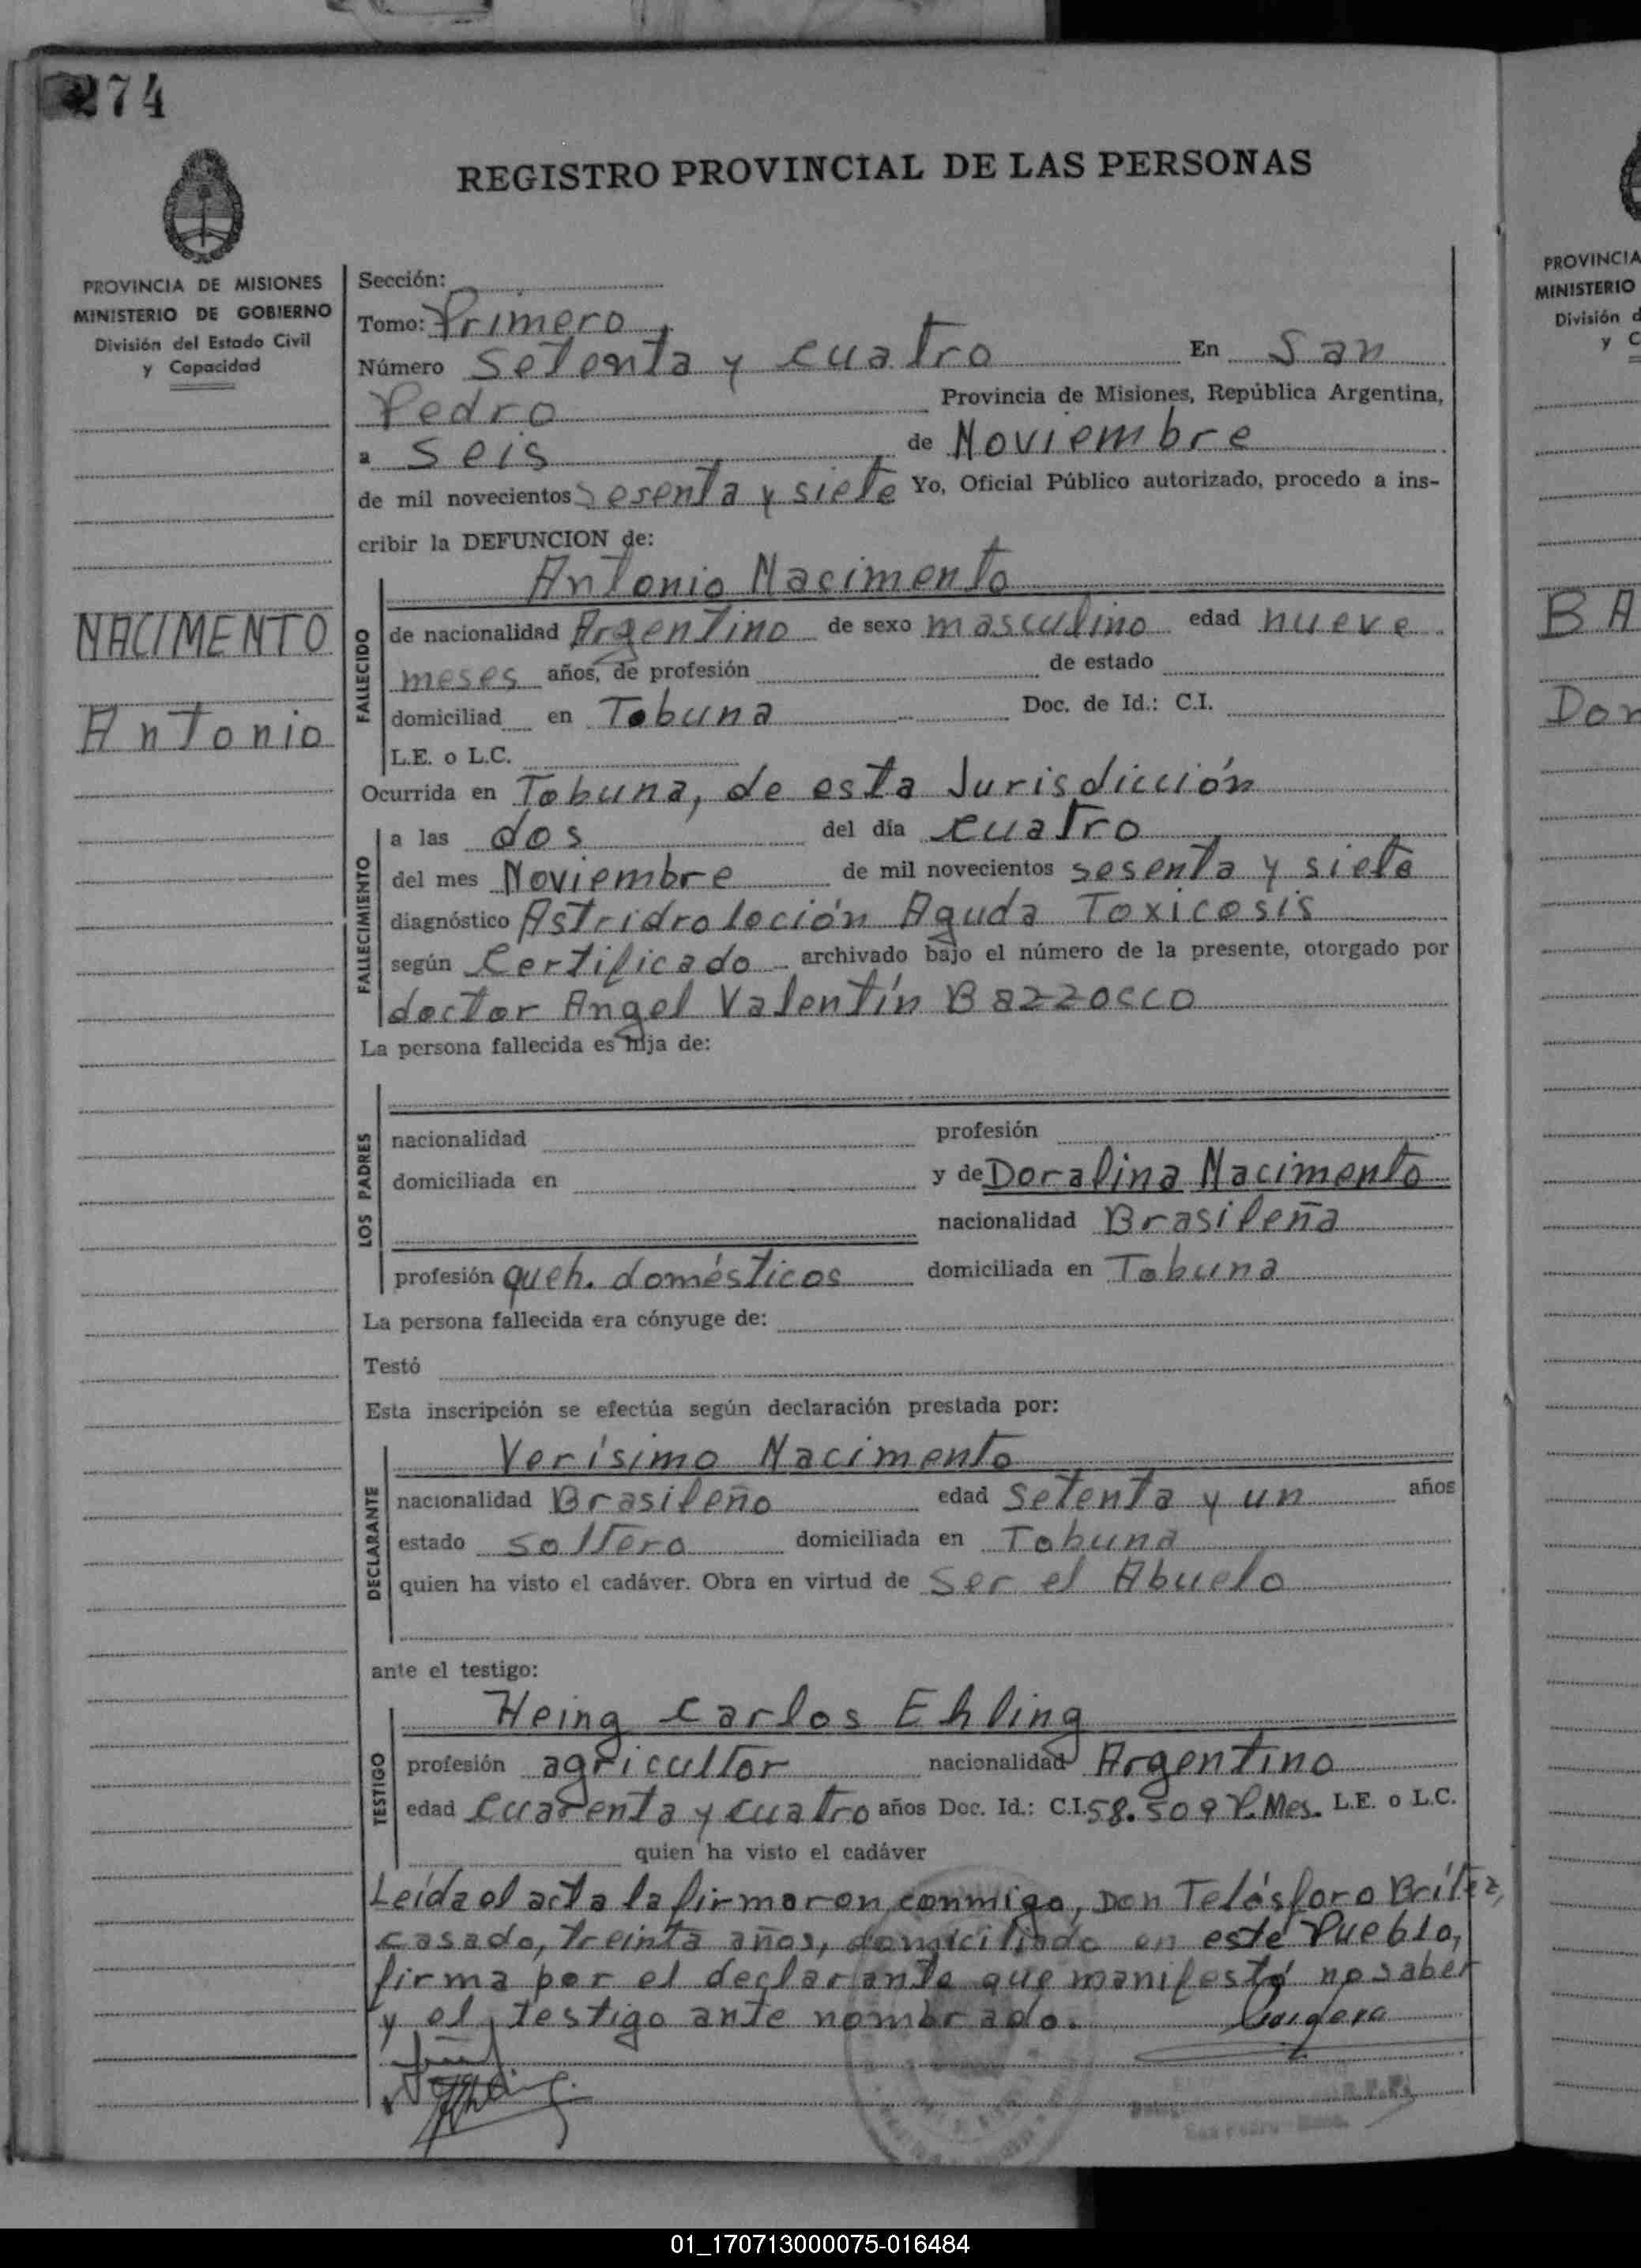 274
REGISTRO PROVINCIAL DE LAS PERSONAS
PROVINCIA DE MISIONES
MINISTERIO DE GOBIERNO
División del Estado Civil
y Capacidad
NACIMENTO
Antonio
Sección:
Tomo: Primero
Número Setenta y cuatro En San
Pedro Provincia de Misiones, República Argentina,
a Seis de Noviembre
de mil novecientos Sesenta y siete Yo, Oficial Público autorizado, procedo a ins-
cribir la DEFUNCION de:
Antonio Nacimento
FALLECIDO
de nacionalidad Argentino de sexo masculino edad nueve
meses años, de profesión de estado
domiciliad en Tobuna Doc. de Id.: C.I.
L.E. o L.C.
Ocurrida en Tobuna, de esta Jurisdicción
FALLECIMIENTO
a las dos del día cuatro
del mes Noviembre de mil novecientos sesenta y siete
diagnóstico Astridroloción Aguda Toxicosis
según Certificado archivado bajo el número de la presente, otorgado por
doctor Angel Valentín Bazzosco
La persona fallecida es hija de:
LOS PADRES
nacionalidad profesión
domiciliada en y de Doralina Nacimento
nacionalidad Brasileña
profesión queh. domésticos domiciliada en Tobuna
La persona fallecida era cónyuge de:
Testó
Esta inscripción se efectúa según declaración prestada por:
Verísimo Nacimento
DECLARANTE
nacionalidad Brasileño edad Setenta y un años
estado soltero domiciliada en Tobuna
quien ha visto el cadáver. Obra en virtud de Ser el Abuelo
ante el testigo:
Heing Carlos Ehling
TESTIGO
profesión agricultor nacionalidad Argentino
edad Cuarenta y cuatro años Doc. Id.: C.I. 58.509 P. Mes. L.E. o L.C.
quien ha visto el cadáver
Leída el acta la firmaron conmigo, Don Telésforo Brítez,
casado, treinta años, domiciliado en este Pueblo,
firma por el declarante que manifestó no saber
y el testigo ante nombrado.
PROVINCIA
MINISTERIO
División d
y C
BA
Dor
01_170713000075-016484